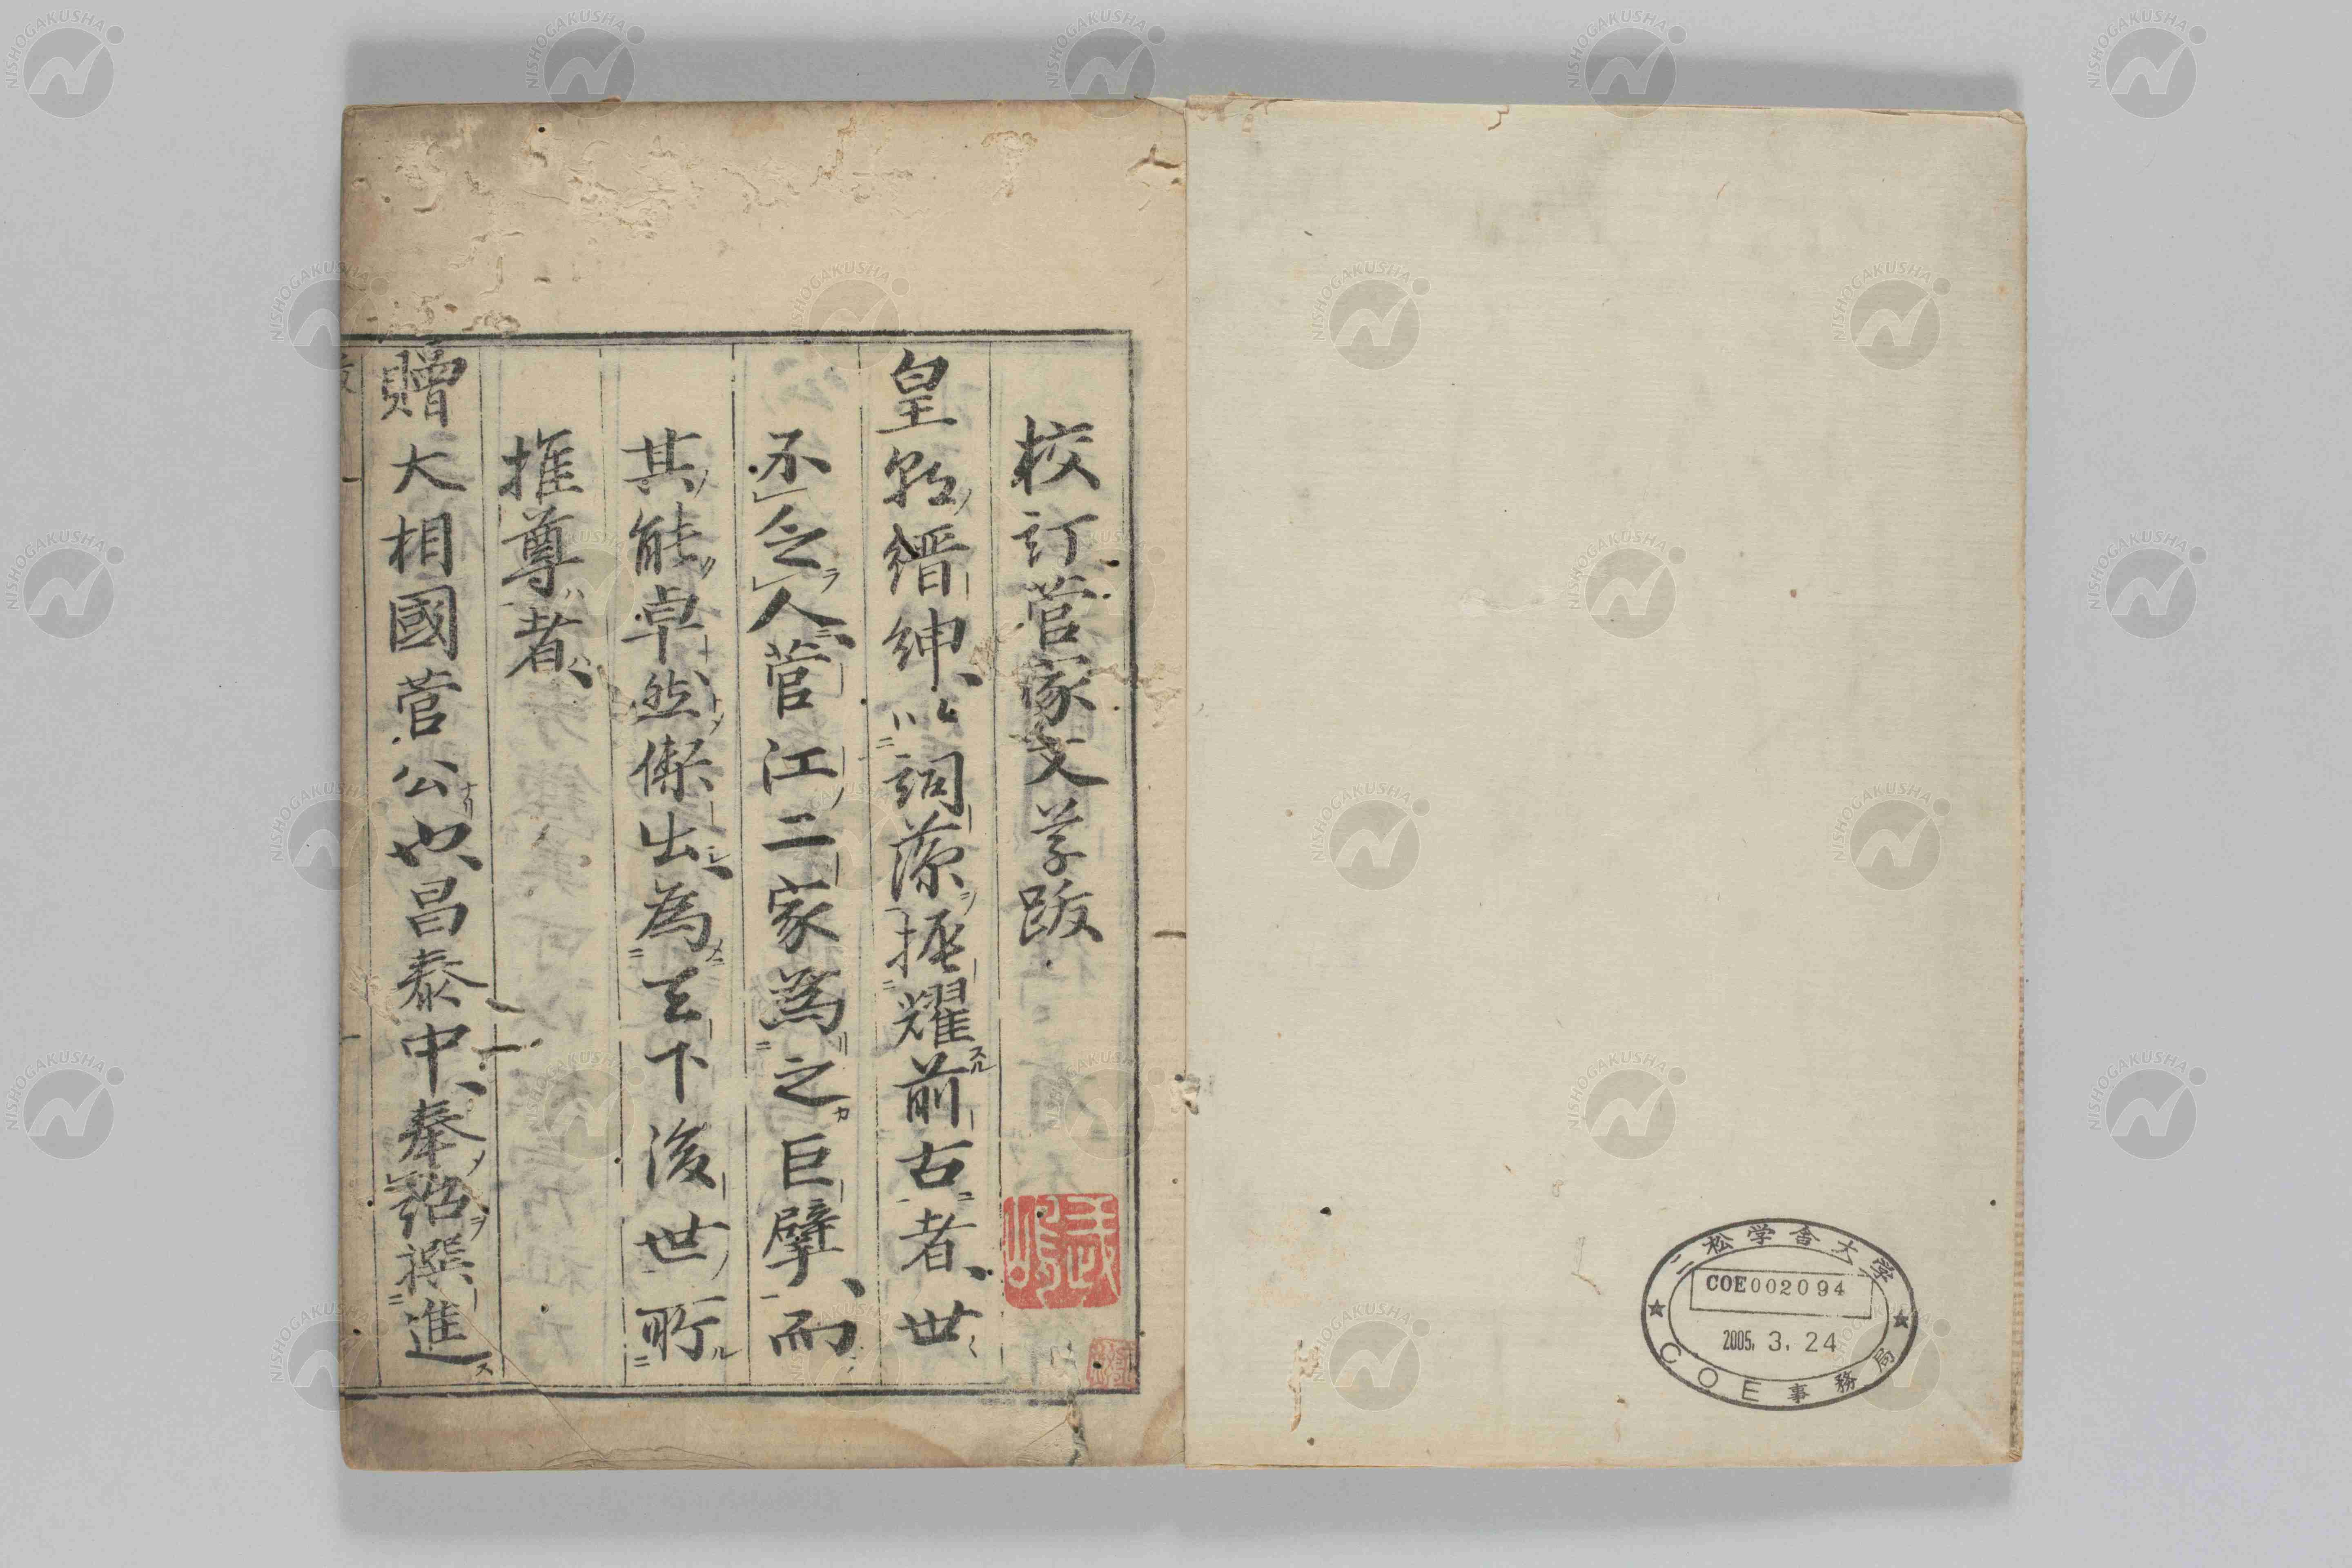 校訂菅家文草跋
皇朝ノ縉紳、以詞藻ヲ振耀スル前古ニ者、世
丕乏ラ人ニ、菅江ノ二家為之カ巨擘、而
其ノ能ク卓然トメ傑出シ、為メニ天下後世ノ所ル
推尊者ハ、
贈大相國菅公ナリ也、昌泰中、奉メ詔ヲ撰進ス
二松学舎大学
COE002094
2005. 3. 24
COE事務局
NISHOGAKUSHA